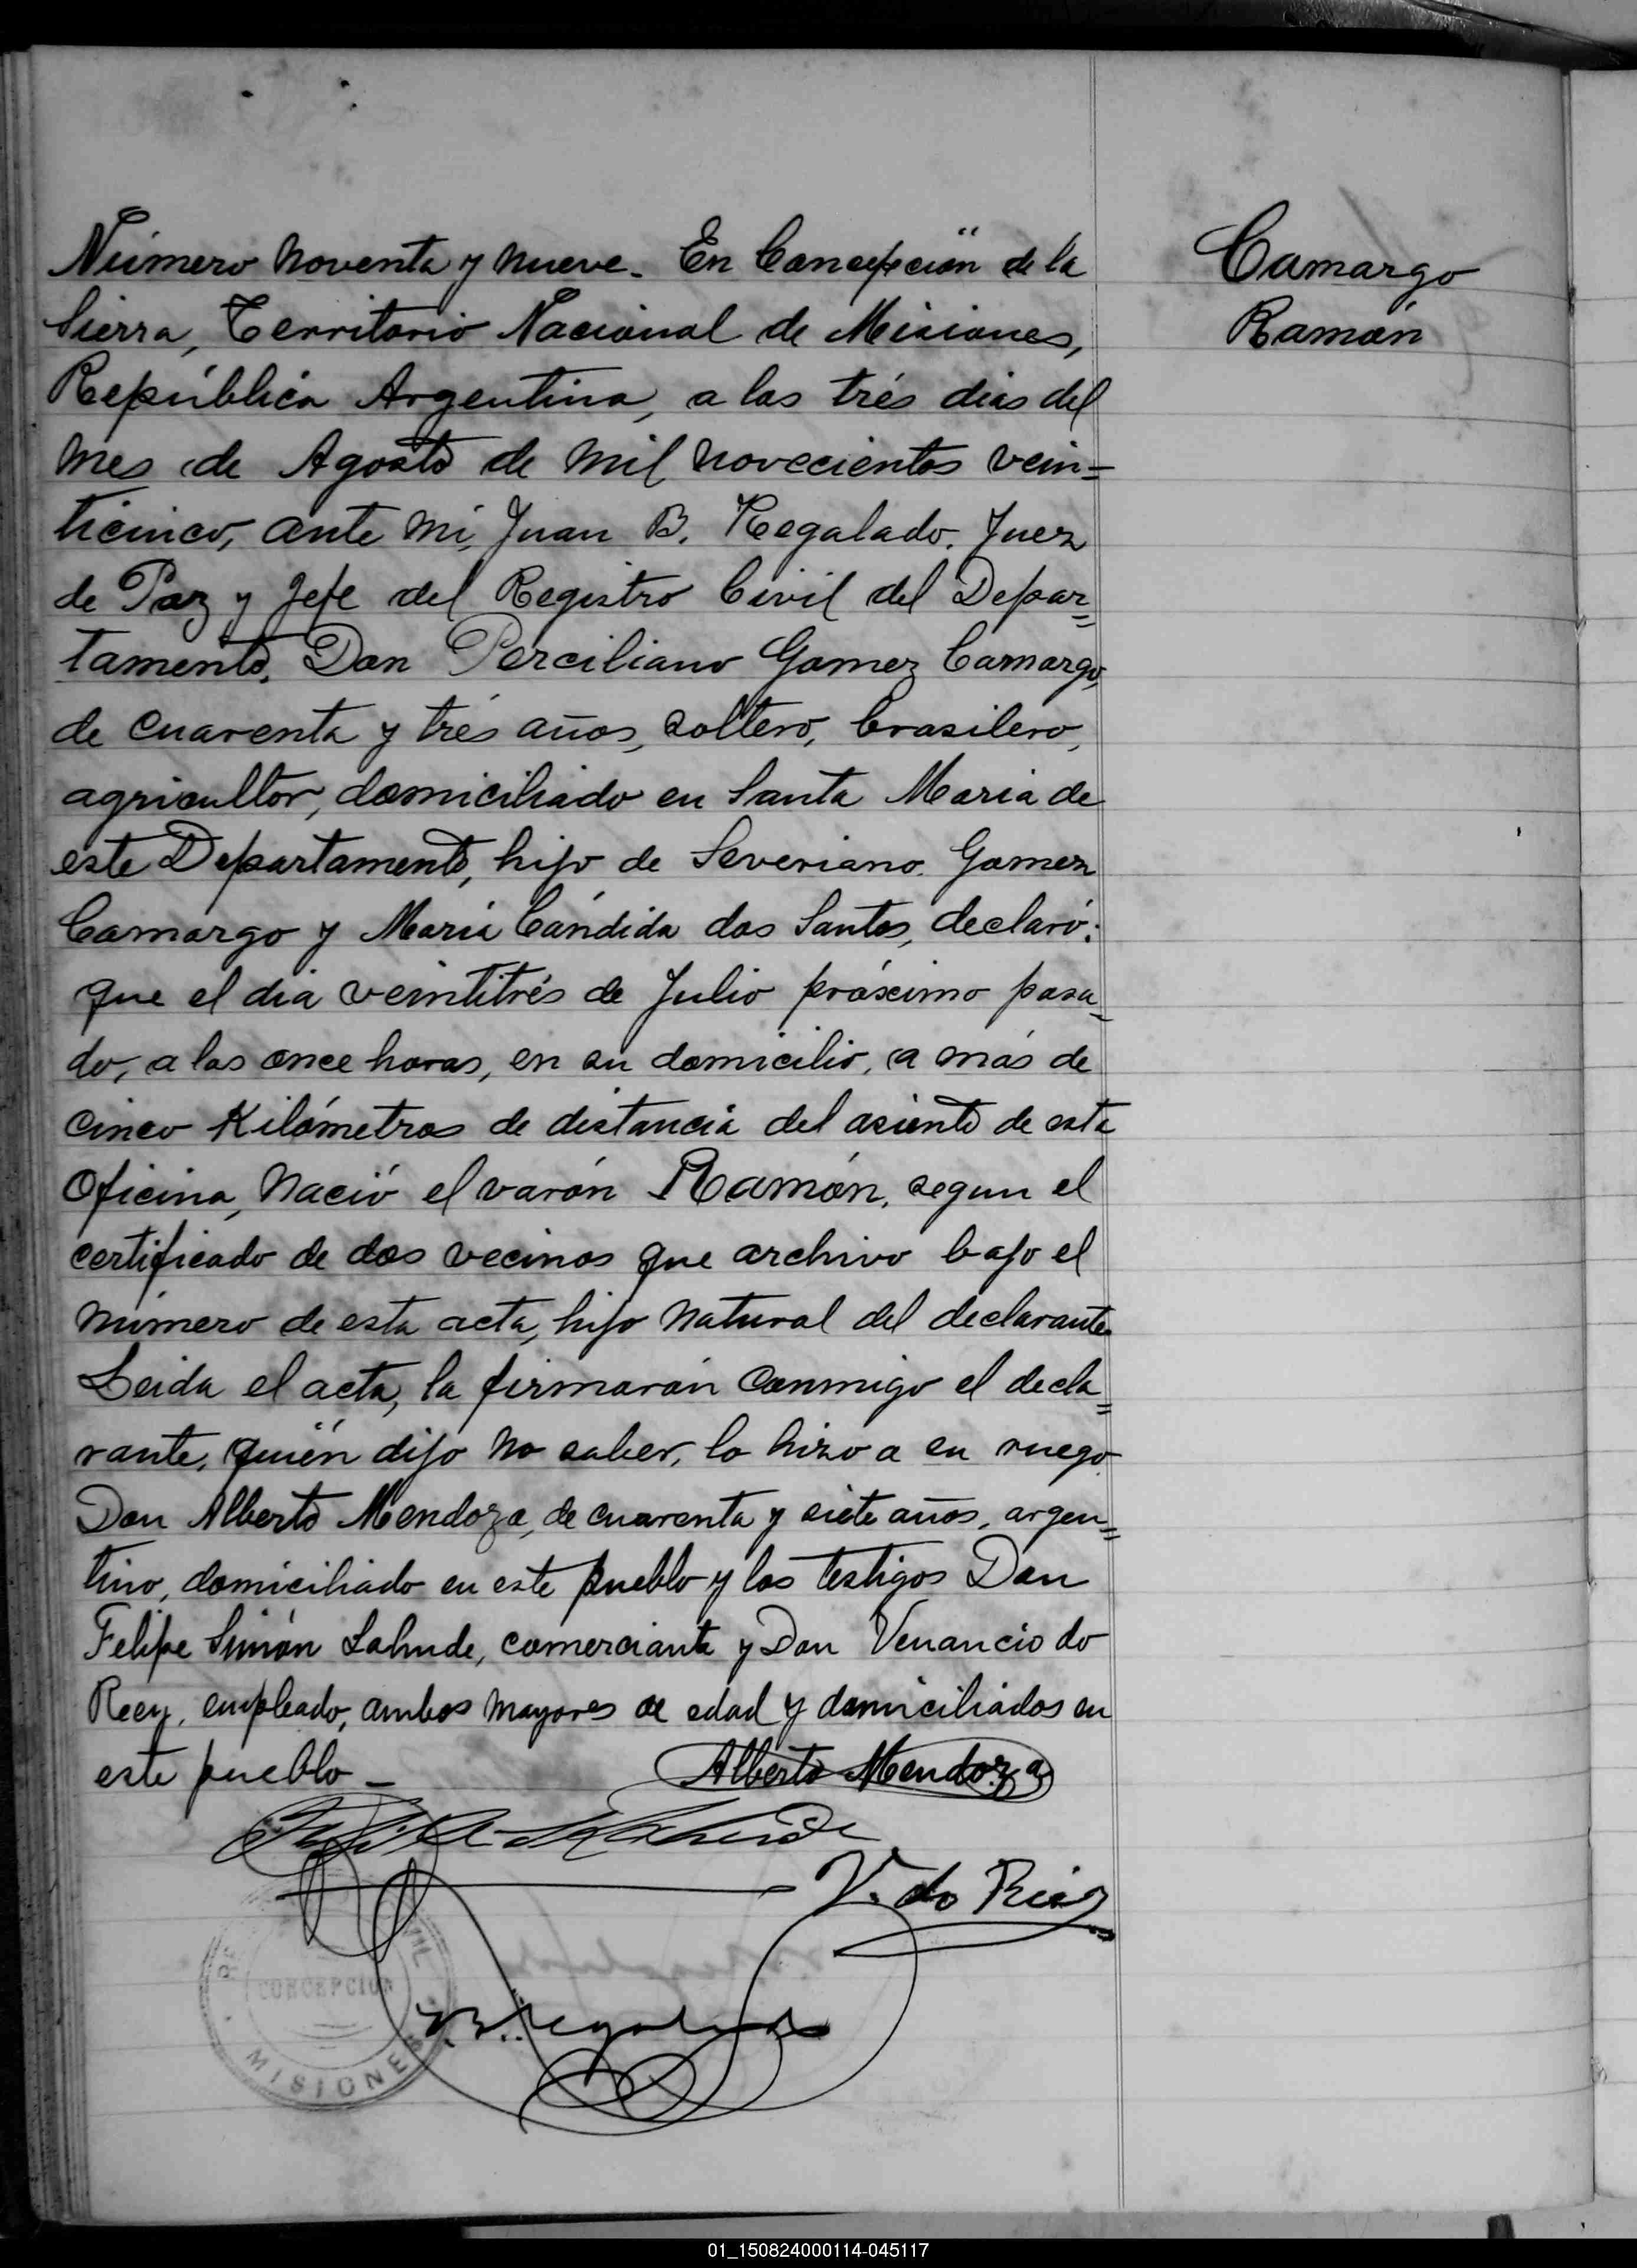 Número noventa y nueve. En Concepción de la
Camargo
Sierra, Territorio Nacional de Misiones,
Ramón
República Argentina, a los trés dias del
mes de Agosto de mil novecientos vein=
ticinco, ante mi, Juan B. Regalado, Juez
de Paz y Jefe del Registro Civil del Depar=
tamento, Don Perciliano Gomez Camargo,
de cuarenta y trés años, soltero, brasilero,
agricultor, domiciliado en Santa Maria de
este Departamento, hijo de Severiano Gomez
Camargo y María Cándida dos Santos, declaró:
que el dia veintitrés de Julio próximo pasa=
do, a las once horas, en su domicilio, a más de
cinco Kilómetros de distancia del asiento de esta
Oficina, nació el varón Ramón, segun el
certificado de dos vecinos que archivo bajo el
número de esta acta, hijo natural del declarante
Leida el acta, la firmarán conmigo el decla=
rante, quién dijo no saber, lo hizo a su ruego
Don Alberto Mendoza, de cuarenta y siete años, argen=
tino, domiciliado en este pueblo y los testigos Don
Felipe Simón Lahude, comerciante y Don Venancio do
empleado, ambos mayores de edad y domiciliados en
este pueblo
Alberto Mendoza
V. do
CONCEPCION
MISIONES
01_150824000114-045117